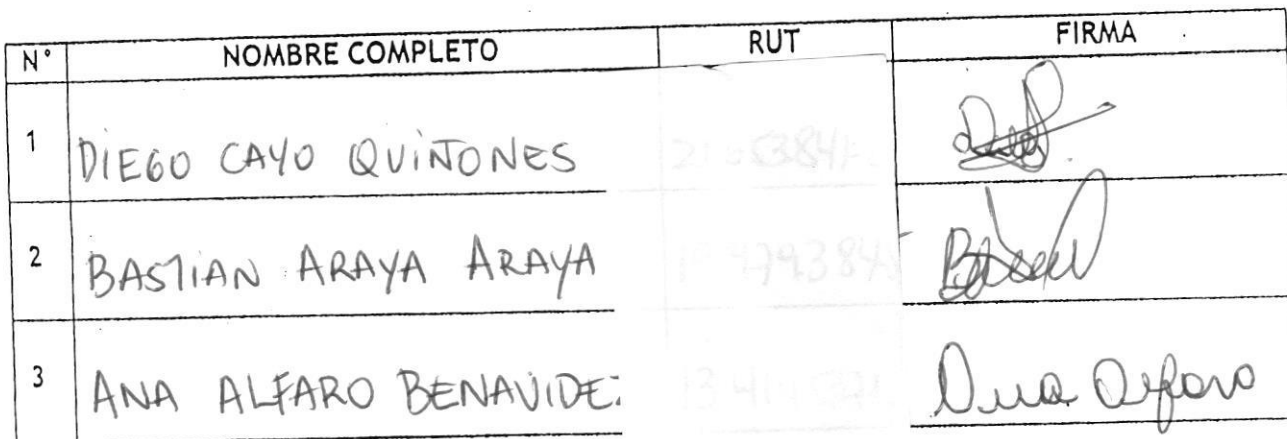 N° NOMBRE COMPLETO RUT FIRMA
1 DIEGO CAYO QUIÑONES
2 BASTIAN ARAYA ARAYA
3 ANA ALFARO BENAVIDE Ana Alfaro